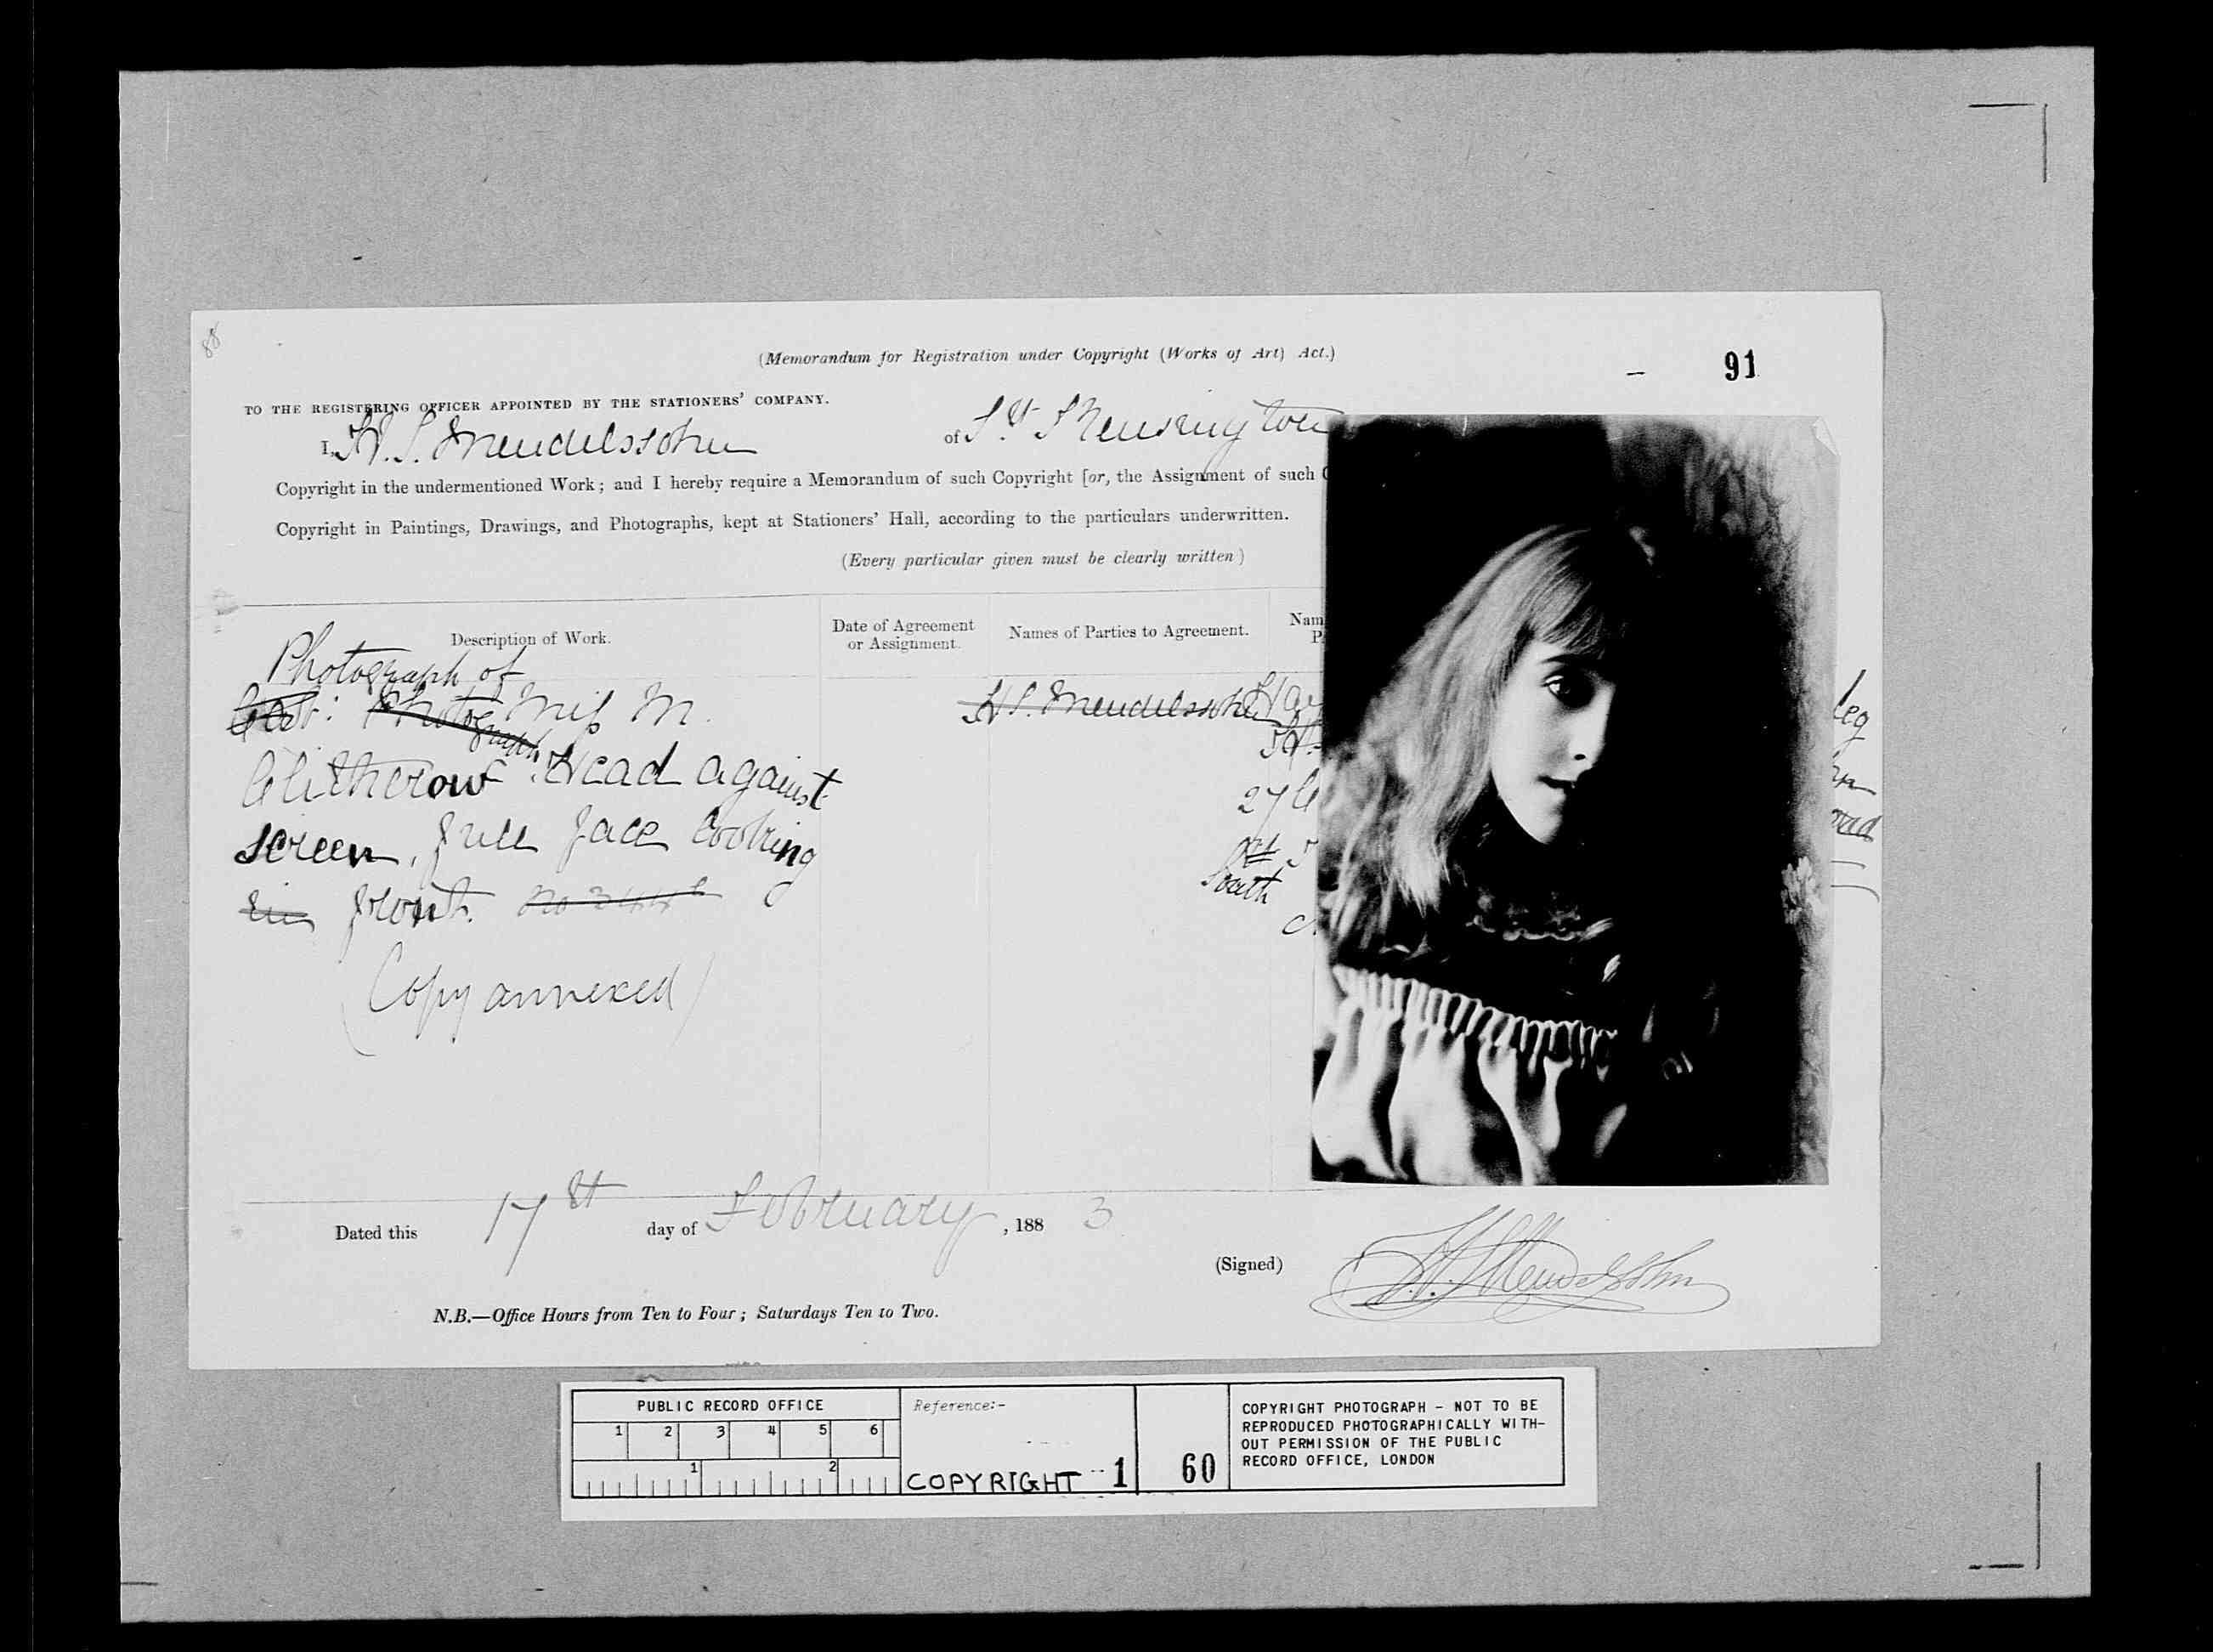 88
(Memorandum for Registration under Copyright (Works of Art) Act.)
91
TO THE REGISTERING OFFICER APPOINTED BY THE STATIONERS' COMPANY.
I, H. S. Mendelssohn of Sth Kensington
Copyright in the undermentioned Work; and I hereby require a Memorandum of such Copyright [or, the Assignment of such
Copyright in Paintings, Drawings, and Photographs, kept at Stationers' Hall, according to the particulars underwritten.
(Every particular given must be clearly written)
Description of Work.
Date of Agreement
or Assignment.
Names of Parties to Agreement.
Nam
Photograph of
Photograph Miss M.
Clitherow. Head against
screen, full face looking
in front.
(Copy annexed)
H S. Mendelssohn
27
South
Dated this 17th day of February, 1883
(Signed) H. S. Mendelssohn
N.B.—Office Hours from Ten to Four; Saturdays Ten to Two.
PUBLIC RECORD OFFICE
1 2 3 4 5 6
1 2
Reference:-
COPYRIGHT 1
60
COPYRIGHT PHOTOGRAPH - NOT TO BE
REPRODUCED PHOTOGRAPHICALLY WITH-
OUT PERMISSION OF THE PUBLIC
RECORD OFFICE, LONDON